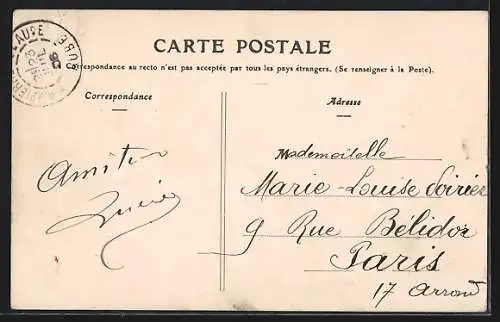 CARTE POSTALE
Correspondance au recto n'est pas acceptée par tous les pays étrangers. (Se renseigner à la Poste).
Correspondance
Adresse
Amitié
Mademoiselle
Marie-Louise
9 Rue Bélidor
Paris
17 Arrond